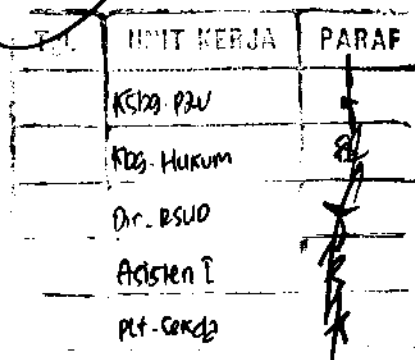 TGL. UNIT KERJA PARAF
Ksbg. PBU
Kbg. Hukum
Dir. RSUD
Asisten I
plt. Sekda